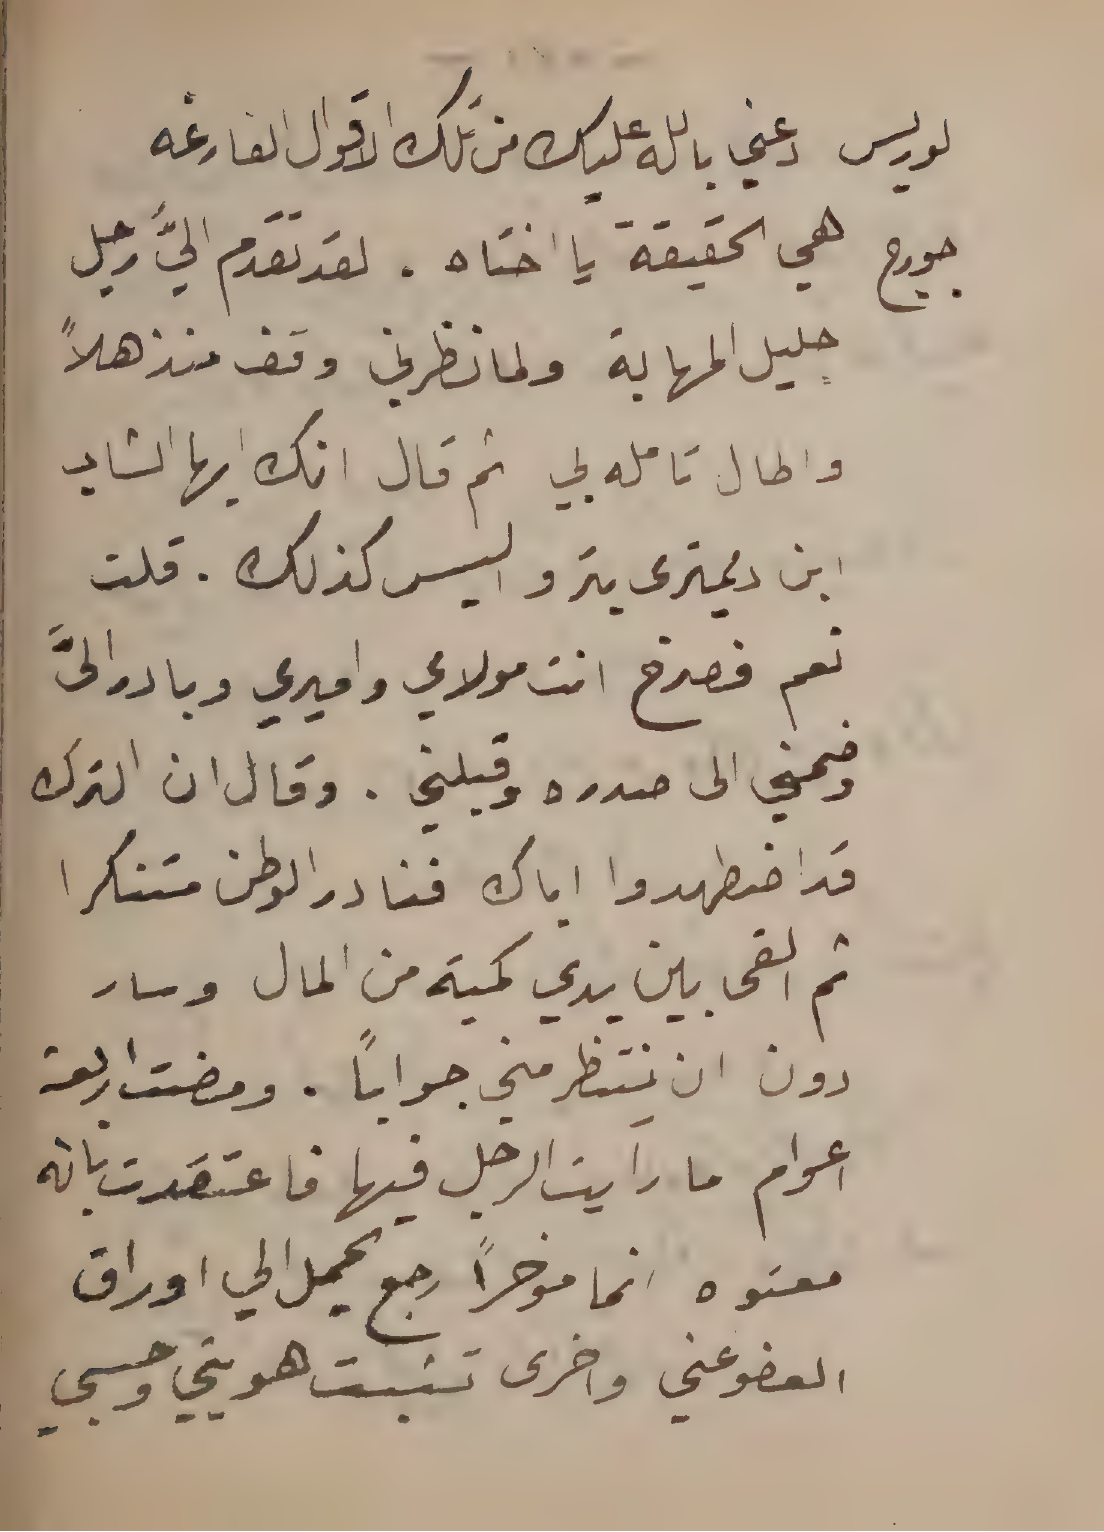 لوريس دعني بالله عليك من تلك الاقوال الفارغه
جورج هي الحقيقة يا اختاه . لقد تقدم اليَّ رجل
جليل المهابة ولما نظرني وقف منذهلاً
واطال تامله بي ثم قال انك ايها الشاب
ابن ديميترى بترو اليس كذلك . قلت
نعم فصرخ انت مولاي واميري وبادر اليَّ
وضمني الى صدره وقبلني . وقال ان الترك
قد اضطهدوا اباك فغادر الوطن متنكرا
ثم القى بين يدي كمية من المال وسار
دون ان ينتظر مني جواباً . ومضت اربعة
اعوام ما رأيت الرجل فيها فاعتقدت بانه
معتوه انما مؤخراً رجع يحمل الي اوراق
العفو عني واخرى تثبت هويتي وحسبي